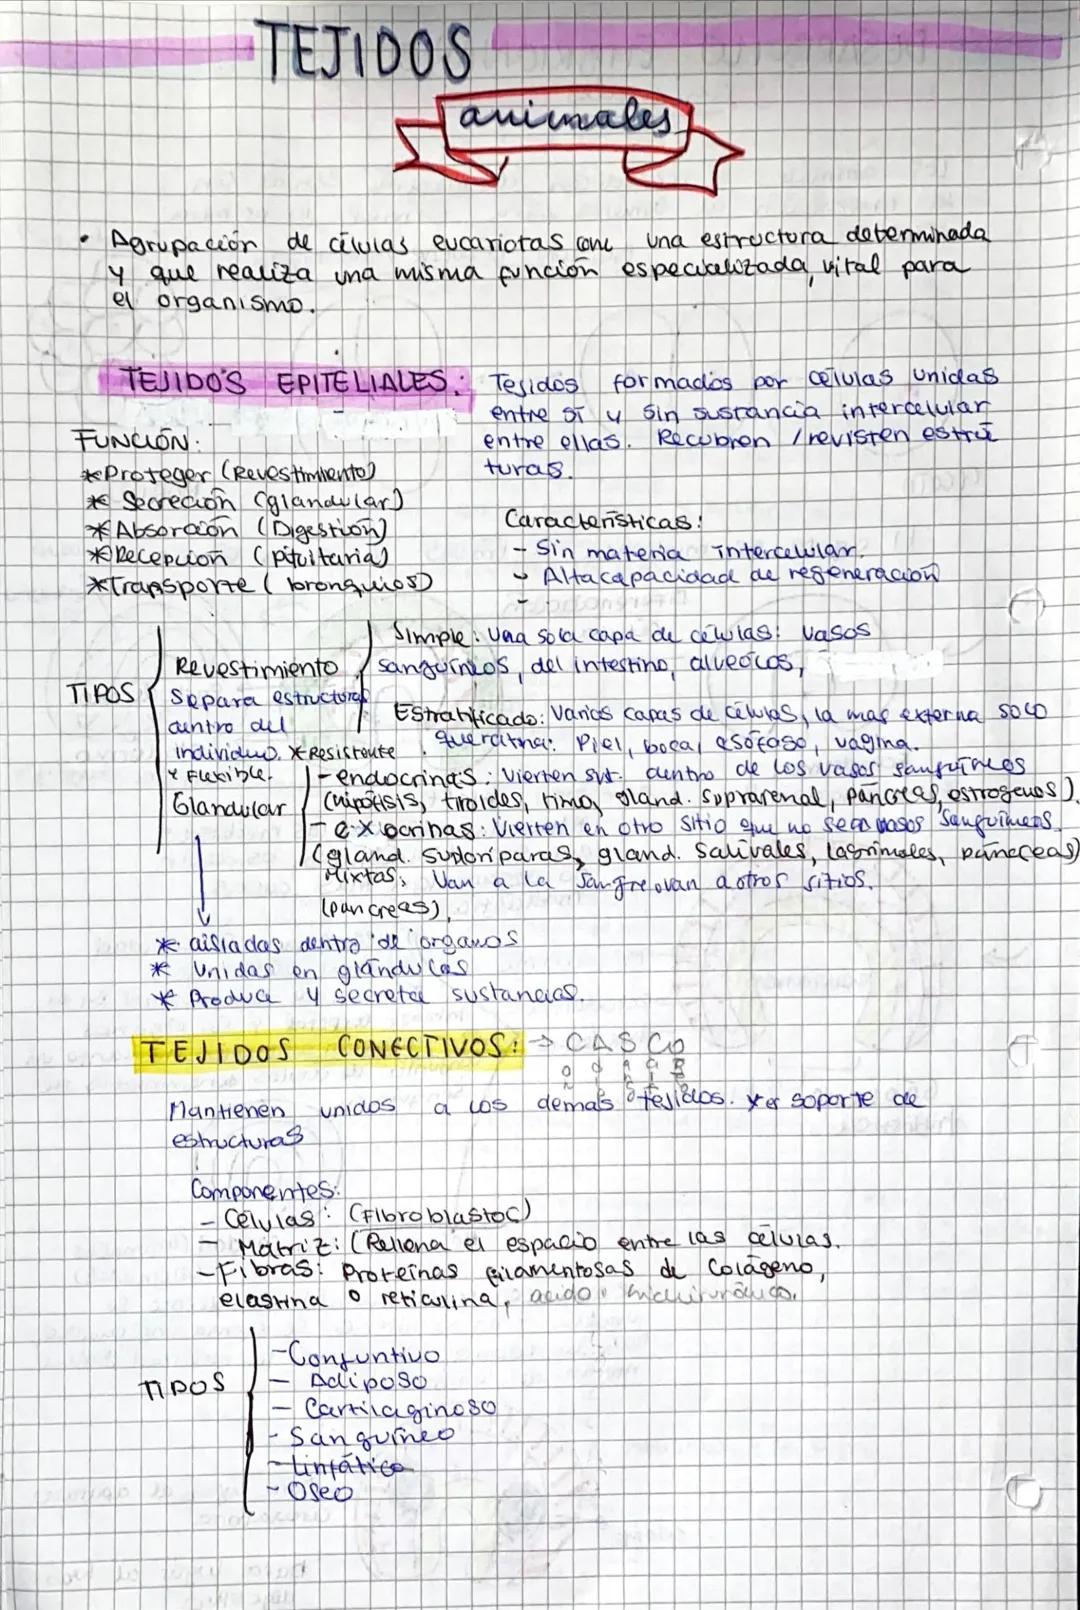 TEJIDOS
animales
• Agrupación de células eucariotas con una estructura determinada
y que realiza una misma función especializada, vital para
el organismo.
TEJIDOS EPITELIALES: Tejidos formados por células unidas
entre sí y sin sustancia intercelular
entre ellas. Recubren / revisten estruc
turas.
FUNCIÓN:
* Proteger (Revestimiento)
* Secreción (glandular)
* Absorción (Digestión)
* Recepción (pituitaria)
* Transporte (bronquios)
Características:
- Sin materia intercelular.
- Alta capacidad de regeneración
-
TIPOS
Revestimiento
Separa estructuras
dentro del
individuo. * Resistente
y Flexible.
Simple: Una sola capa de células: vasos
sanguíneos, del intestino, alveolos,
Estratificado: Varias capas de células, la mas externa solo
queratina: Piel, boca, esófago, vagina.
Glandular
- endocrinas: Vierten sust. dentro de los vasos sanguíneos
(hipófisis, tiroides, timo, gland. suprarenal, páncreas, estrogenos).
- exocrinas: Vierten en otro sitio que no sean vasos sanguíneos.
(gland. sudoríparas, gland. salivales, lagrimales, páncreas)
Mixtas: Van a la sangre o van a otros sitios.
(pancreas).
* aisladas dentro de organos
* Unidas en glándulas
* Produce y secreta sustancias.
TEJIDOS CONECTIVOS: → CASCO
Mantienen unidos a los demás tejidos. y es soporte de
estructuras
Componentes:
- Células: (Fibroblastoc)
- Matriz: (Rellena el espacio entre las células.
- Fibras: Proteínas filamentosas de Colágeno,
elastina o reticulina, acido
TIPOS
- Conjuntivo
- Adiposo
- Cartilaginoso
- Sanguíneo
- Linfático
- Oseo